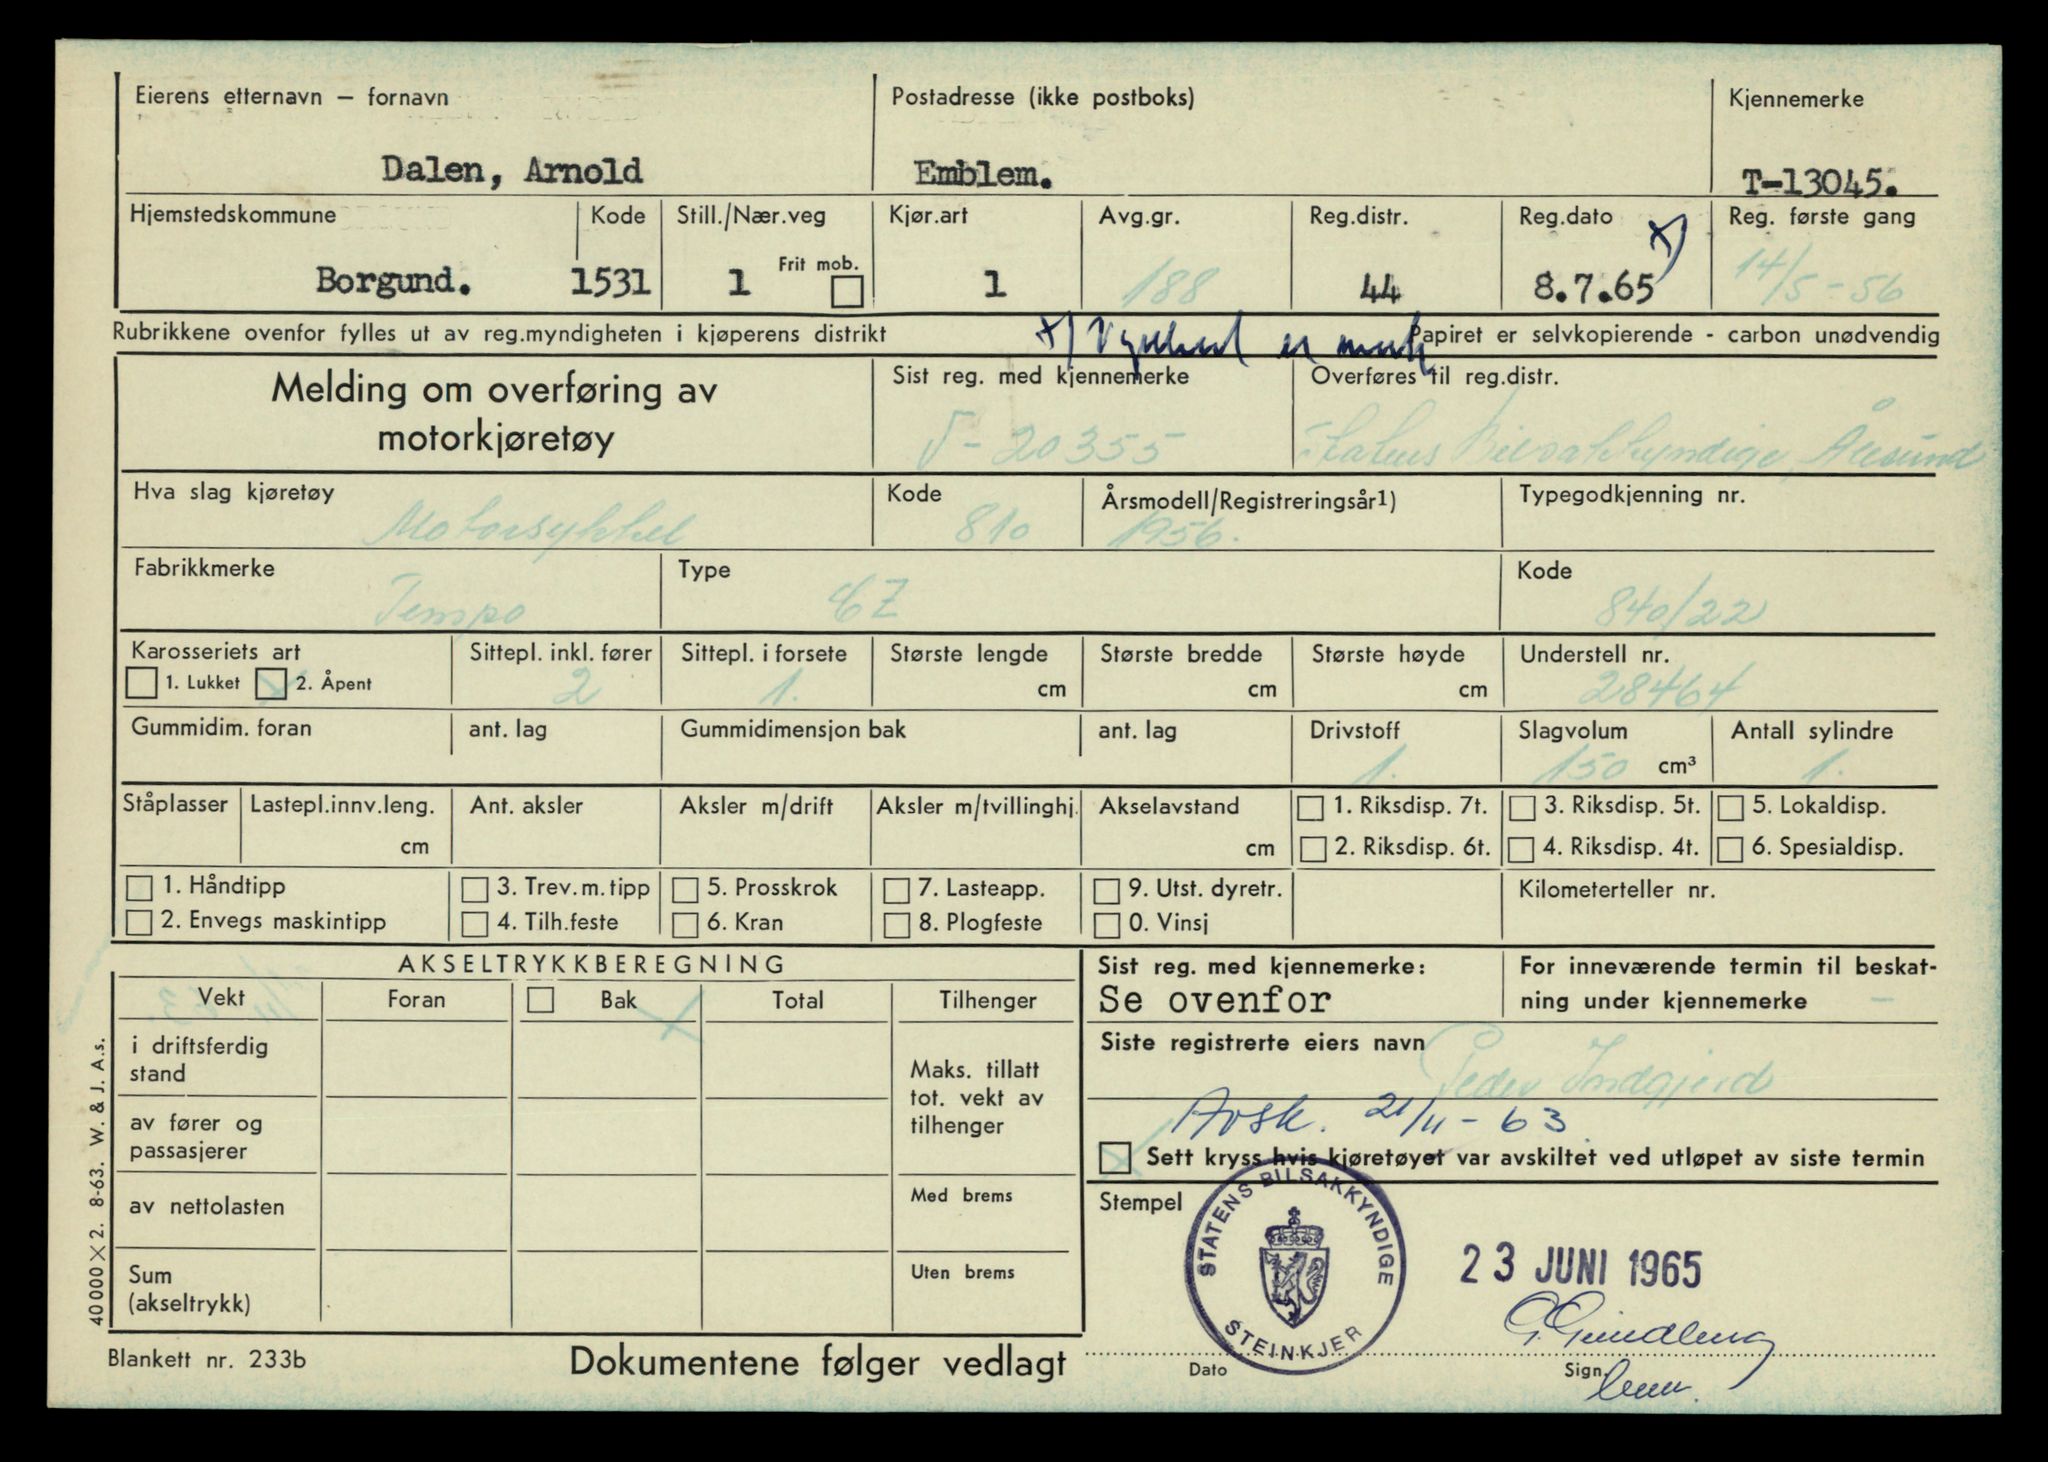 Eierens etternavn – fornavn
Postadresse (ikke postboks)
Kjennemerke
Dalen, Arnold
Emblem.
T-13045.
Hjemstedskommune
Kode
Still./Nær.veg
Kjør.art
Avg.gr.
Reg.distr.
Reg.dato
Reg. første gang
Borgund.
1531
1
Frit mob.
1
188
44
8.7.65
x)
14/5-56
Rubrikkene ovenfor fylles ut av reg.myndigheten i kjøperens distrikt
x)
er
Papiret er selvkopierende - carbon unødvendig
Melding om overføring av
motorkjøretøy
Sist reg. med kjennemerke
Overføres til reg.distr.
-20355
Statens Bilsakkyndige, Ålesund
Hva slag kjøretøy
Kode
Årsmodell/Registreringsår1)
Typegodkjenning nr.
Motorsykkel
810
1956.
Fabrikkmerke
Type
Kode
Tempo
CZ
840/22
Karosseriets art
Sittepl. inkl. fører
Sittepl. i forsete
Største lengde
Største bredde
Største høyde
Understell nr.
1. Lukket
2. Åpent
2
1.
cm
cm
cm
28464
Gummidim. foran
ant. lag
Gummidimensjon bak
ant. lag
Drivstoff
Slagvolum
Antall sylindre
1.
150 cm³
1.
Ståplasser
Lastepl.innv.leng.
Ant. aksler
Aksler m/drift
Aksler m/tvillinghj.
Akselavstand
1. Riksdisp. 7t.
3. Riksdisp. 5t.
5. Lokaldisp.
cm
cm
2. Riksdisp. 6t.
4. Riksdisp. 4t.
6. Spesialdisp.
1. Håndtipp
3. Trev.m.tipp
5. Prosskrok
7. Lasteapp.
9. Utst. dyretr.
Kilometerteller nr.
2. Envegs maskintipp
4. Tilh.feste
6. Kran
8. Plogfeste
0. Vinsj
AKSELTRYKKBEREGNING
Vekt
Foran
Bak
Total
Tilhenger
i driftsferdig
stand
Maks. tillatt
tot. vekt av
tilhenger
av fører og
passasjerer
av nettolasten
Med brems
Sum
(akseltrykk)
Uten brems
Sist reg. med kjennemerke:
Se ovenfor
For inneværende termin til beskat-
ning under kjennemerke –
Siste registrerte eiers navn
Peder Indgjerd
Avsk. 21/11-63
Sett kryss hvis kjøretøyet var avskiltet ved utløpet av siste termin
Stempel
STATENS BILSAKKYNDIGE
STEINKJER
23 JUNI 1965
Dato
Sign.
40000×2. 8-63. W. & J. A.s.
Blankett nr. 233b
Dokumentene følger vedlagt